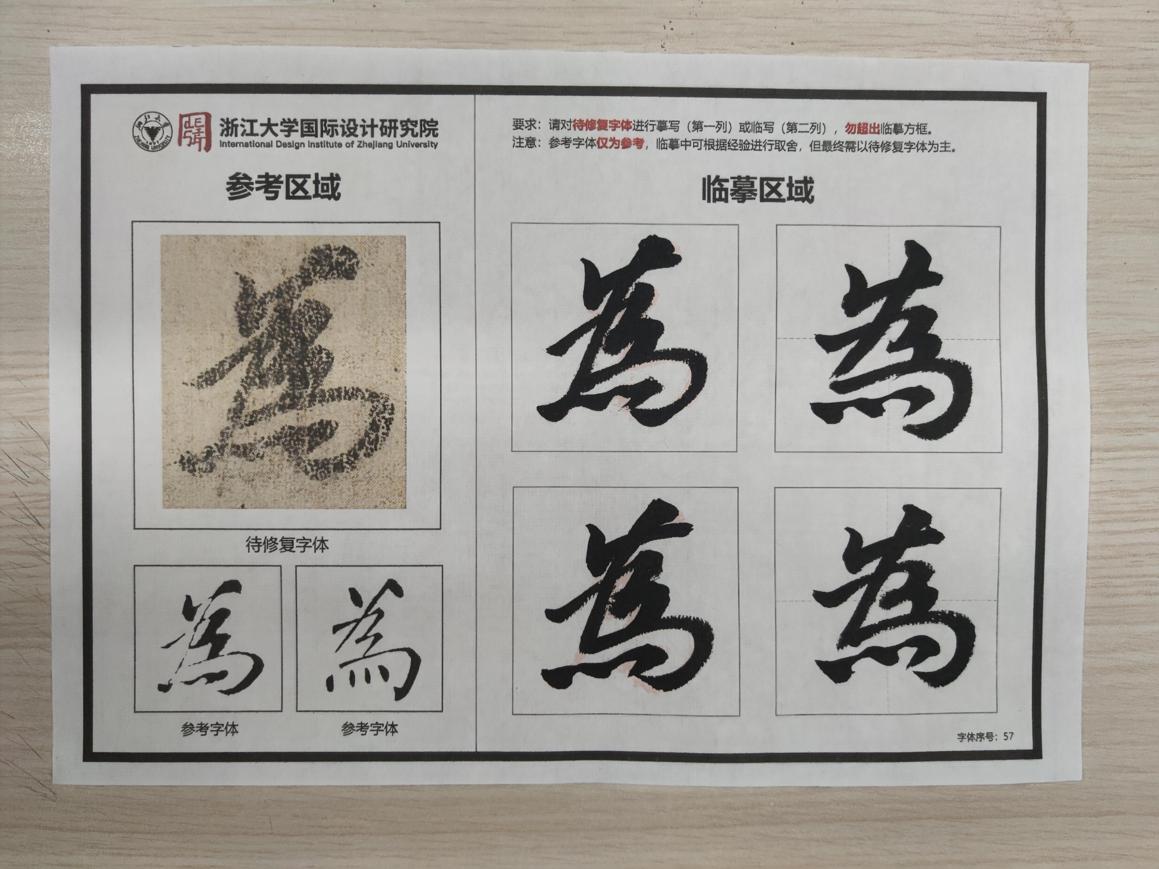 浙江大学国际设计研究院
International Design Institute of Zhejiang University
参考区域
為
待修复字体
為
為
参考字体
参考字体
要求：请对待修复字体进行摹写（第一列）或临写（第二列），勿超出临摹方框。
注意：参考字体仅为参考，临摹中可根据经验进行取舍，但最终需以待修复字体为主。
临摹区域
為
為
為
為
字体序号：57